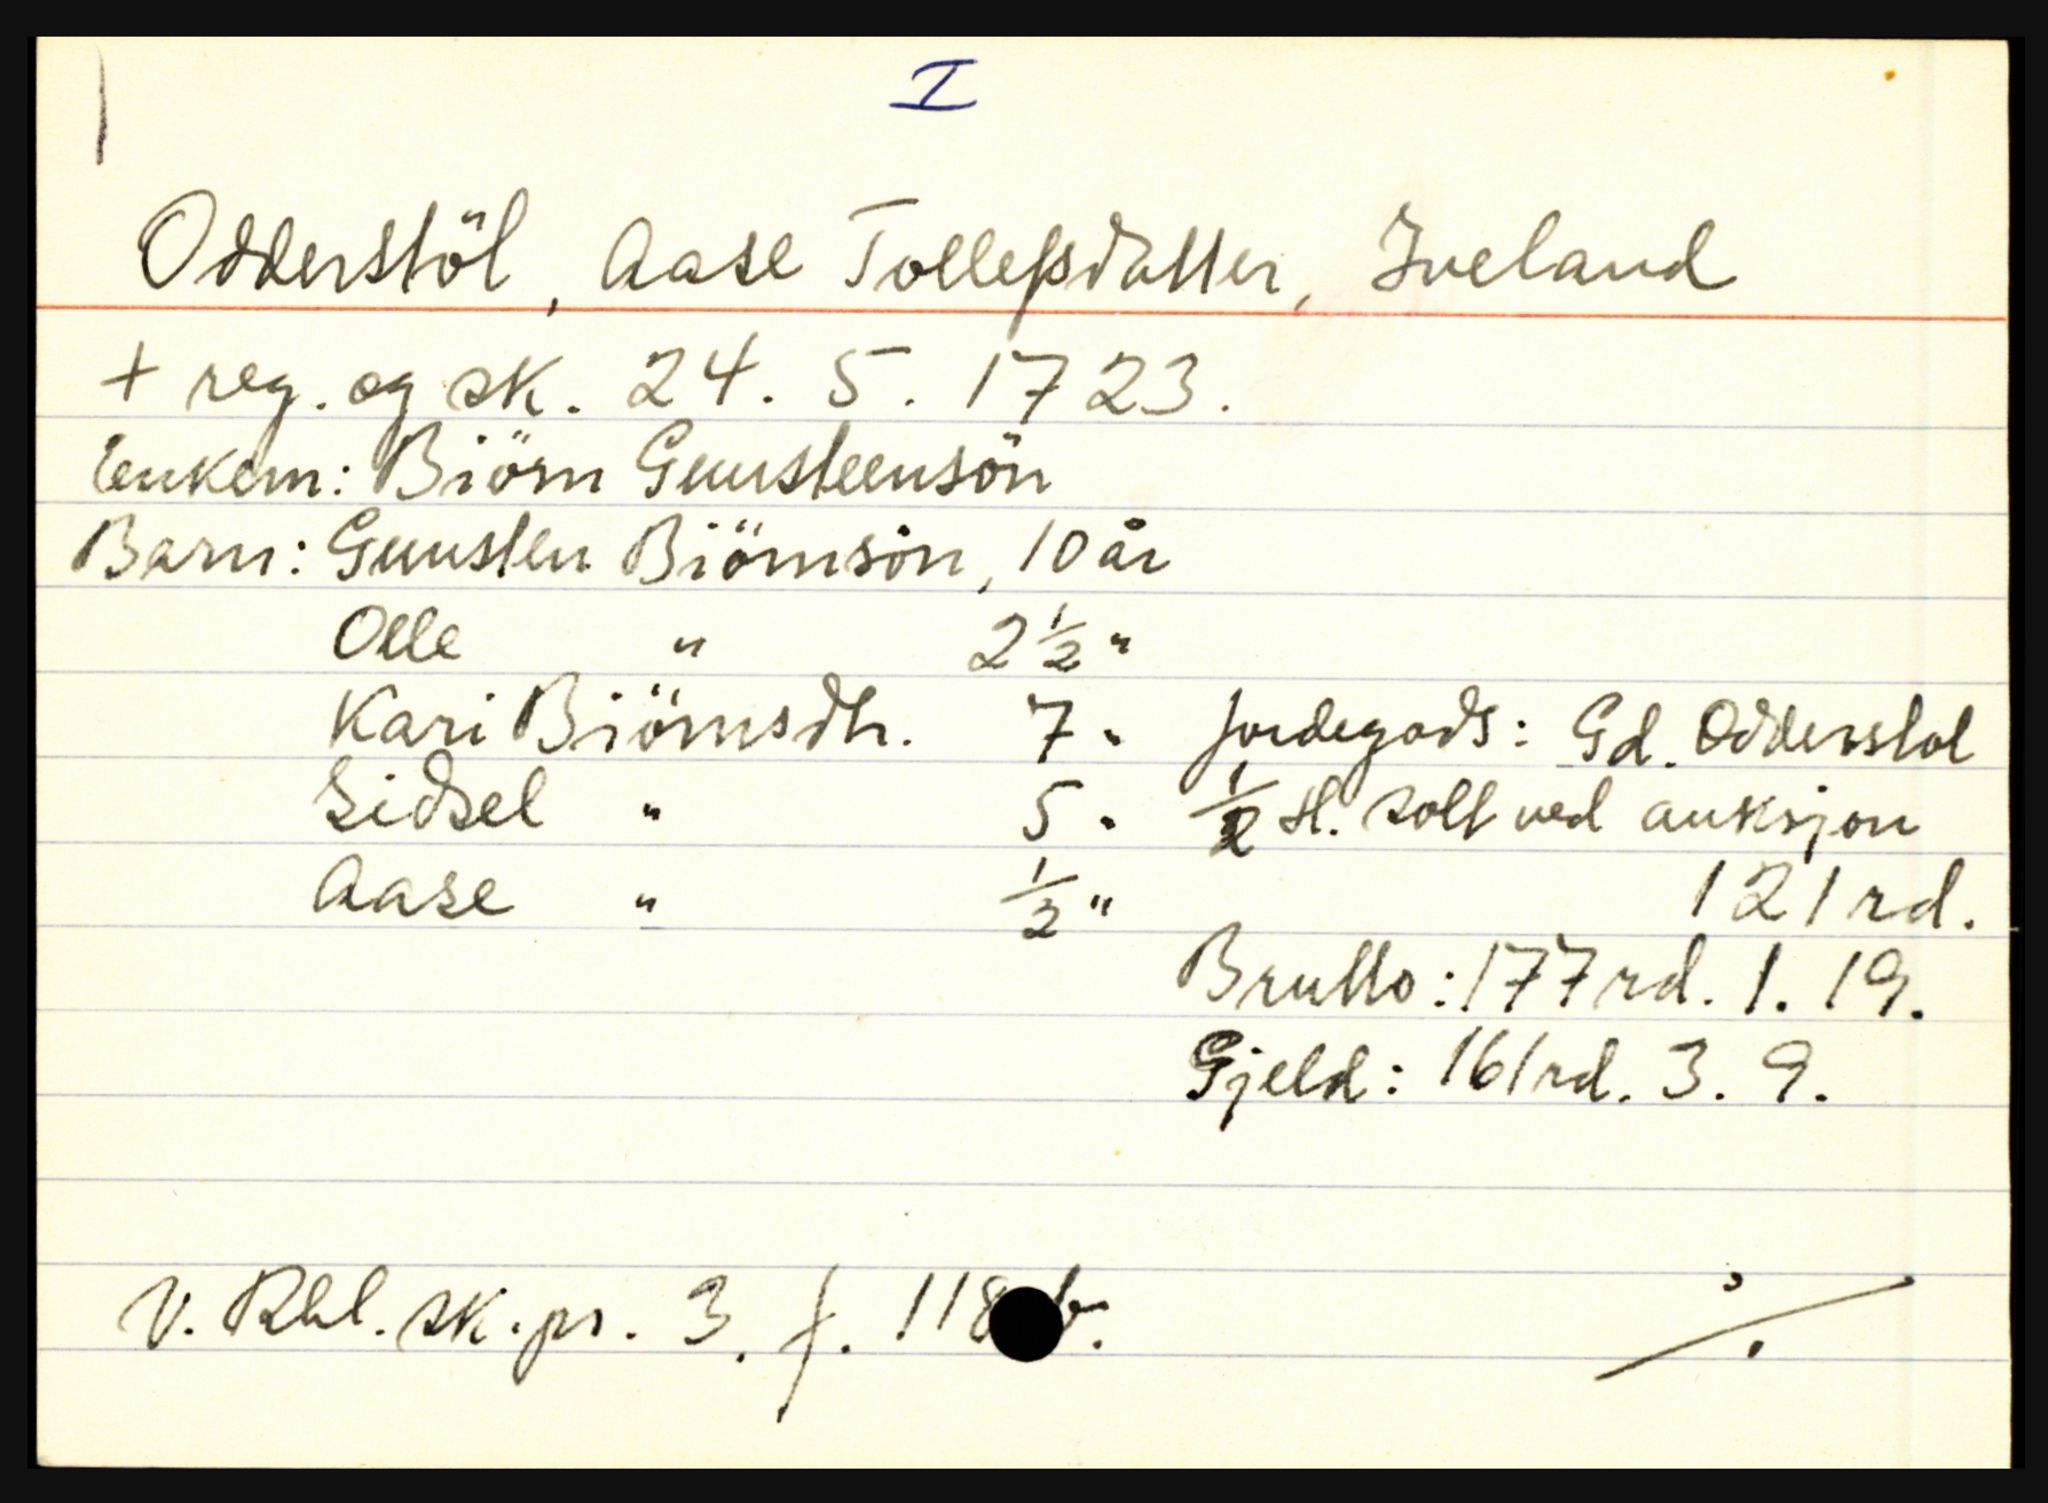 I
Odderstöl, Aase Tollefsdatter, Iveland
+ reg. og sk. 24. 5. 1723.
Enkem: Biörn Gunsteensön
Barn: Gunsten Biörnsön, 10 år
Olle " 2 1/2 "
Kari Biörnsdtr. 7 "
Sidsel " 5 "
Aase " 1/2 "
Jordegods: Gd. Odderstol
1/2 H. solt ved auksjon
121 rd.
Brutto: 177 rd. 1. 19.
Gjeld: 161 rd. 3. 9.
V. Rbl. sk. pr. 3. f. 118 b.